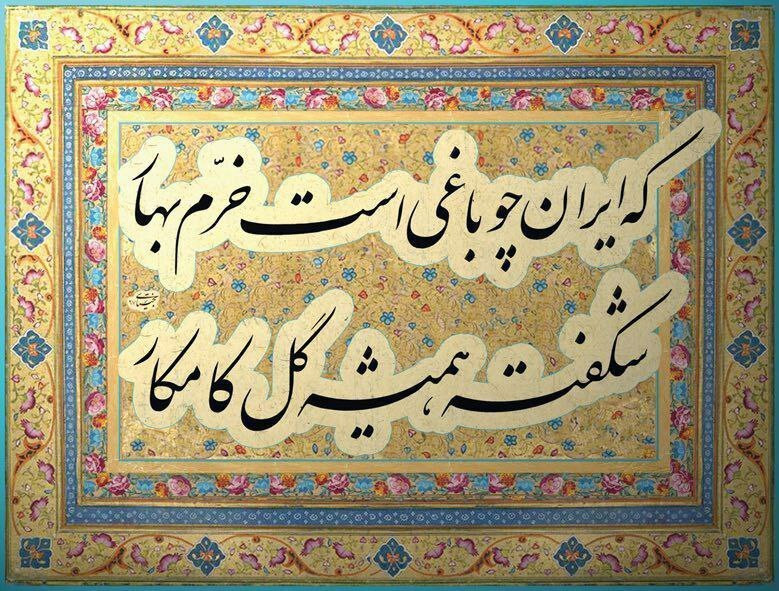 که ایران چو باغی است خرّم بهار
شکفته همیشه گل کامکار